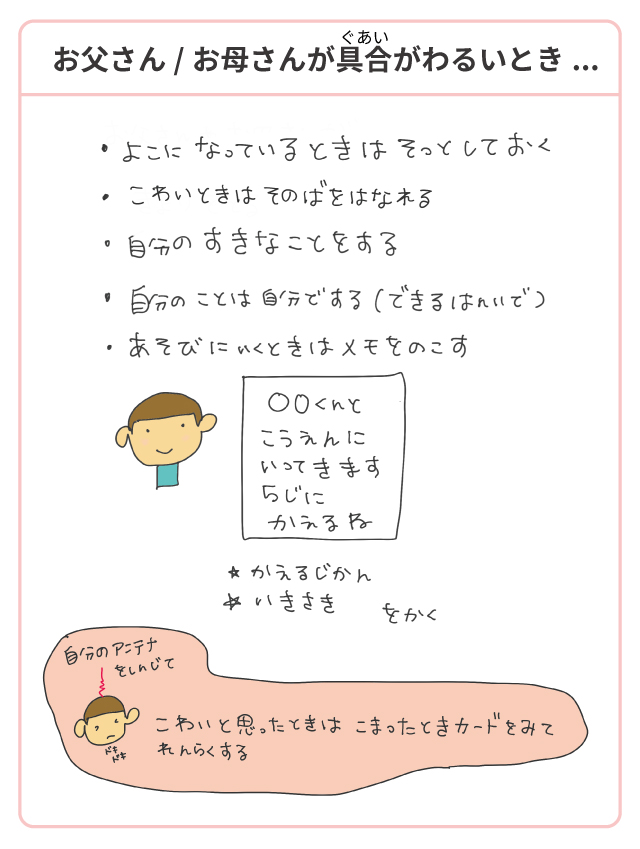 ぐあい
お父さん / お母さんが具合がわるいとき ...
・よこに なっているときは そっとしておく
・こわいときは そのばをはなれる
・自分の すきなことをする
・自分の ことは 自分でする (できるはんいで)
・あそびに いくときは メモをのこす
〇〇くんと
こうえんに
いってきます
5じに
かえるね
★ かえるじかん
★ いきさき をかく
自分のアンテナ
をしんじて
ドキ
ドキ
こわいと思ったときは こまったときカードをみて
れんらくする